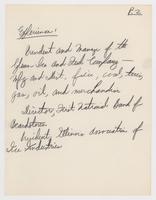 Experience:
President and Manager of the
Ice and Fuel Company —
Mfg and dist. of ice, coal, tires,
gas, oil, and merchandise
Director, First National Bank of
Beardstown
President, Illinois Association of
Ice Industries